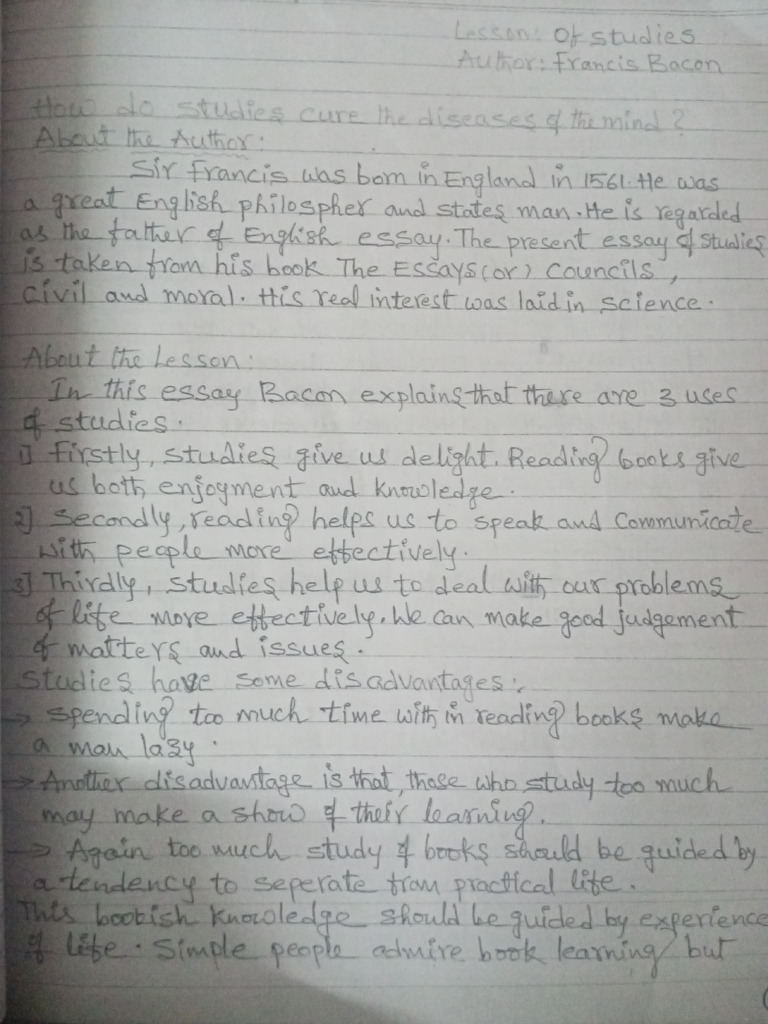 Lesson: Of studies
Author: Francis Bacon
How do studies cure the diseases of the mind?
About the Author:
Sir Francis was born in England in 1561. He was
a great English philospher and states man. He is regarded
as the father of English essay. The present essay of studies
is taken from his book The Essays (or) Councils,
civil and moral. His real interest was laid in science.
About the Lesson:
In this essay Bacon explains that there are 3 uses
of studies.
1] Firstly, studies give us delight. Reading books give
us both enjoyment and knowledge.
2] Secondly, reading helps us to speak and communicate
with people more effectively.
3] Thirdly, studies help us to deal with our problems
of life more effectively. We can make good judgement
of matters and issues.
Studies have some disadvantages:
→ Spending too much time with in reading books make
a man lazy.
→ Another disadvantage is that, those who study too much
may make a show of their learning.
→ Again too much study of books should be guided by
a tendency to seperate from practical life.
This bookish knowledge should be guided by experience
of life. Simple people admire book learning but